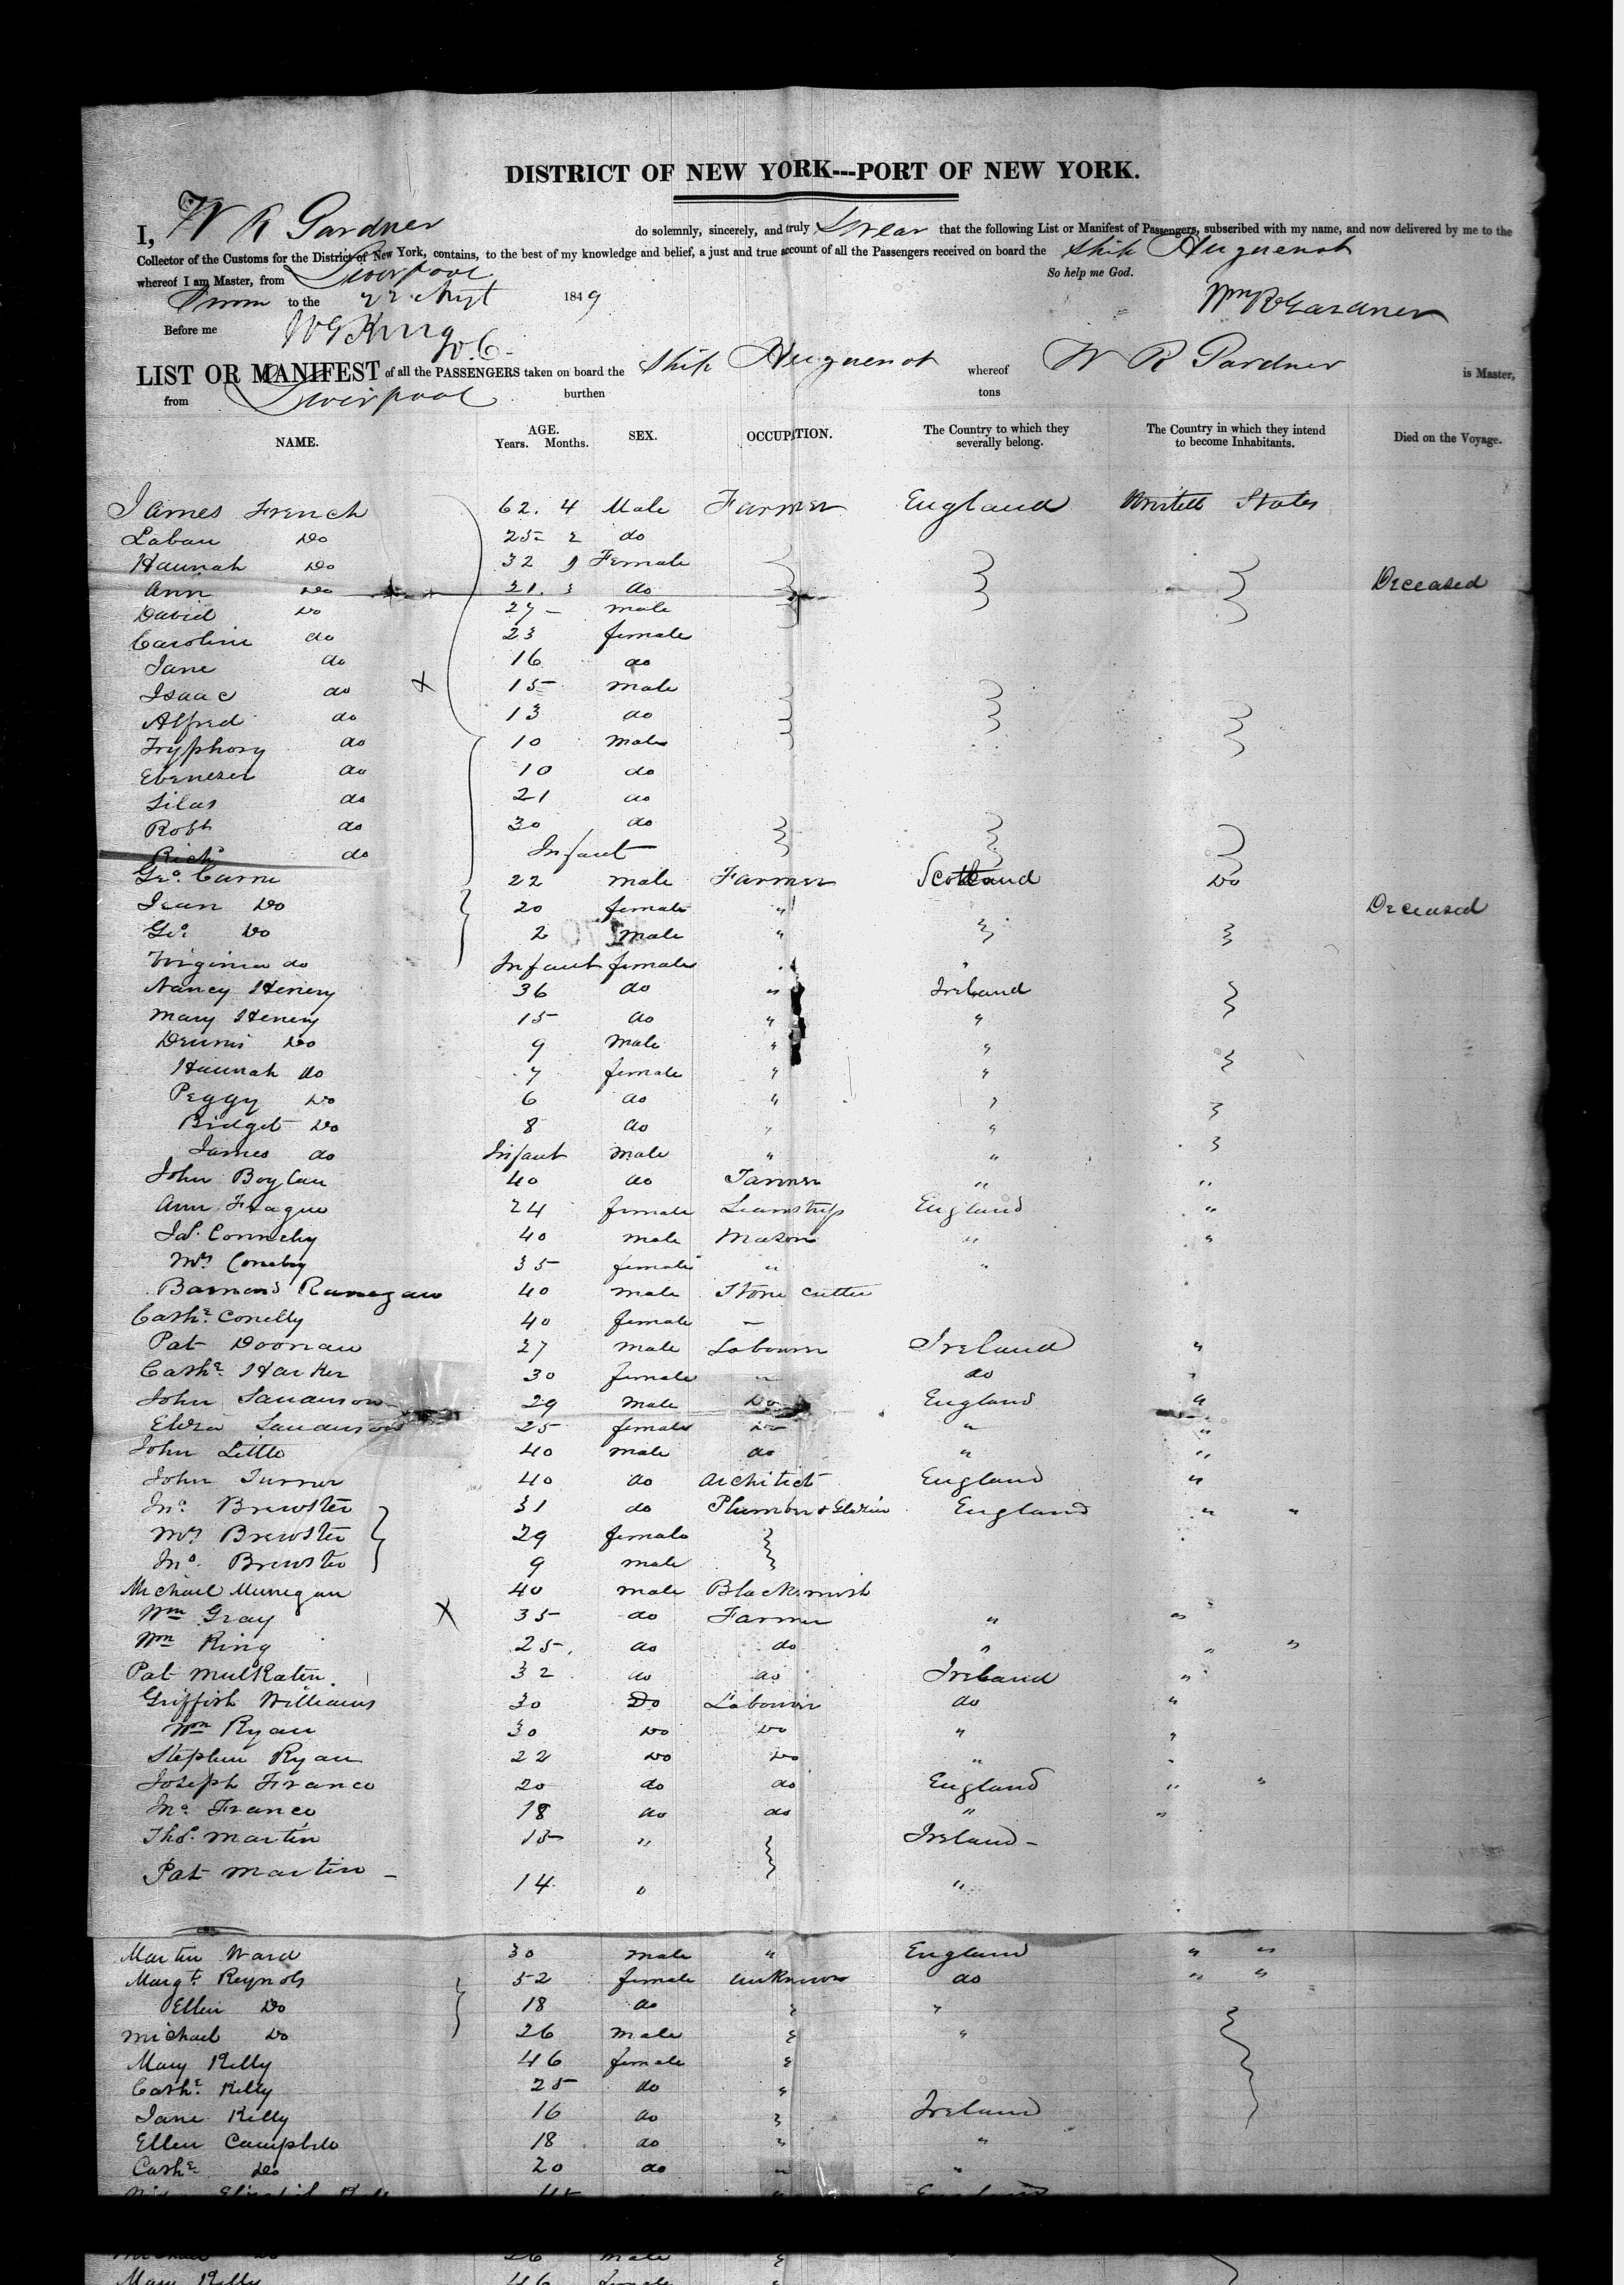 DISTRICT OF NEW YORK---PORT OF NEW YORK.
I, W R Gardner do solemnly, sincerely, and truly Swear that the following List or Manifest of Passengers, subscribed with my name, and now delivered by me to the
Collector of the Customs for the District of New York, contains, to the best of my knowledge and belief, a just and true account of all the Passengers received on board the Ship Huguenot
whereof I am Master, from Liverpool So help me God.
Sworn to the 22 1849 Wm R Gardner
Before me
LIST OR MANIFEST of all the PASSENGERS taken on board the Ship Huguenot whereof W R Gardner is Master,
from Liverpool burthen tons
NAME. AGE. Years. Months. SEX. OCCUPATION. The Country to which they severally belong. The Country in which they intend to become Inhabitants. Died on the Voyage.
James French 62. 4 Male Farmer England United States
Laban Do 25 do
Hannah Do 32 Female
Ann Do 21. do Deceased
David Do 27 – male
Caroline do 23 female
Jane do 16 do
Isaac do 15 male
Alfred do 13 do
Tryphosy do 10 male
Ebenezer do 10 do
Silas do 21 do
Robt do 30 do
Richd do Infant
Geo. Carne 22 male Farmer Scotland Do
Jean Do 20 female " Deceased
Geo. Do 2 male "
Virginia do Infant female "
Nancy Henery 36 do " Ireland
Mary Henery 15 do " "
Dennis Do 9 male " "
Hannah do 7 female " "
Peggy Do 6 do " "
Bridget Do 8 do " "
James do Infant male " "
John Boylan 40 do Farmer " "
Ann 24 female England "
Jas. Connelly 40 male Mason " "
Mrs 35 female " "
40 male Stone cutter
Cathe. Conelly 40 female –
Pat Doonan 27 male Labourer Ireland "
Cathe. Harker 30 female " do "
John Sanderson 29 male Do England "
Eliza Sanderson 25 female Do " "
John Little 40 male do " "
John Turner 40 do Architect England "
Jno. Brewster 31 do Plumber & Glazier England " "
Mrs Brewster 29 female
Jno. Brewster 9 male
Michael 40 male Blacksmith
Wm Gray 35 do Farmer " "
Wm King 25 do do " " "
Pat 32 do do Ireland "
Griffith Williams 30 Do Labourer do "
Wm Ryan 30 Do Do " "
Stephen Ryan 22 Do Do "
Joseph Franco 20 do do England " "
Jno. Franco 18 do do " "
Thos. Martin 15 " Ireland –
Pat Martin – 14 "
Martin Ward 30 male " England " "
Margt. Reynols 52 female unknown do " "
Ellen Do 18 do "
Michael Do 26 male "
Mary Kelly 46 female
Cathe. Kelly 25 do "
Jane Kelly 16 do Ireland
Ellen Campbell 18 do " "
Cathe. Do 20 do " "
England
26 male
Mary Kelly 46 female